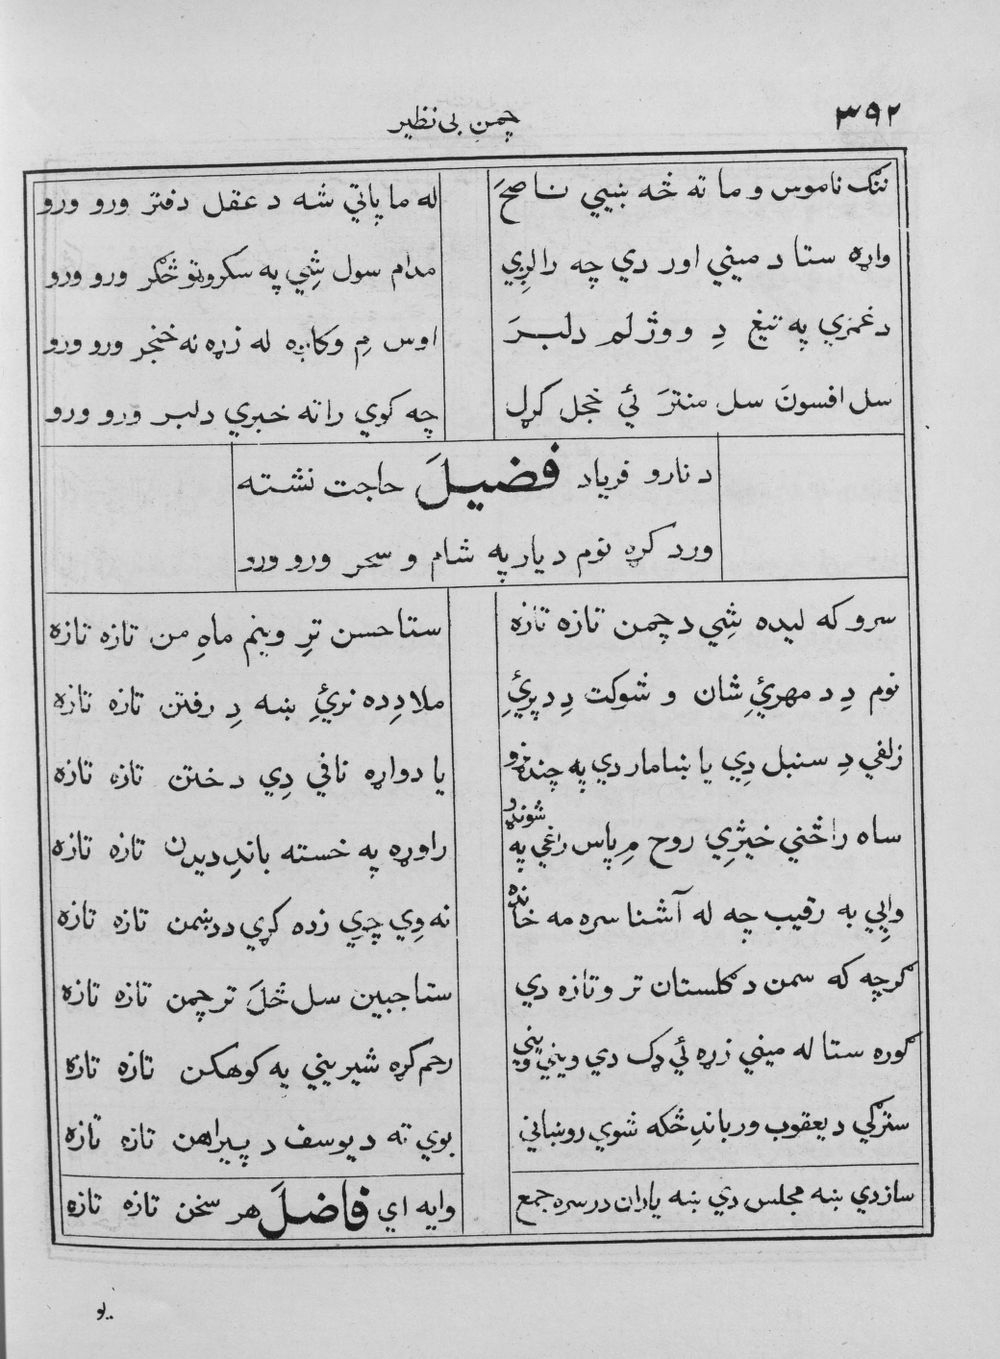 ۳۹۲
چمن بی نظیر
ننګ ناموس و ما ته څه ښيي ناصحَ
له ما پاتي شه د عقل دفتر ورو ورو
واړه ستا د ميني اور دي چه راليږي
مدام سول شِي په سکروټو ځګر ورو ورو
د غمزي په تيغ دِ و وژلم دلبرَ
اوس مِ وکاږه له زړه نه خنجر ورو ورو
سل افسونَ سل منترَ ئي خجل کړل
چه کوي راته خبري دلبر ورو ورو
د نارو فرياد فضيلَ حاجت نشته
ورد کړه نوم د يار په شام و سحر ورو ورو
سرو که ليده شِي د چمن تازه تازه
ستا حسن ترِ وينم ماهِ من تازه تازه
نوم دِ د مهرئِ شان و شوکت دِ د پرئِ
ملا دِ ده نرئِ ښه دِ رفتن تازه تازه
زلفي دِ سنبل دِي يا ښامار دي په چندڼو
يا دواړه نافي دِي د ختن تازه تازه
ساه را څني خيژِي روح مِ پاس راغي په شونډو
راوړه په خسته باندِ ديدن تازه تازه
وايِي به رقيب چه له آشنا سره مه خانده
نه وِي چرِي زده کړي د دښمن تازه تازه
ګرچه که سمن د ګلستان تر و تازه دي
ستا جبين سل ځلَ تر چمن تازه تازه
ګوره ستا له ميني زړه ئي ډک دي ويني ويني
رحم کړه شيريني په کوهکن تازه تازه
سترګي د يعقوب ور باندِ ځکه شوي روښاني
بوي ته د يوسف د پيراهن تازه تازه
ساز دي ښه مجلس دي ښه ياران در سره جمع
وايه اي فاضلَ هر سخن تازه تازه
يو